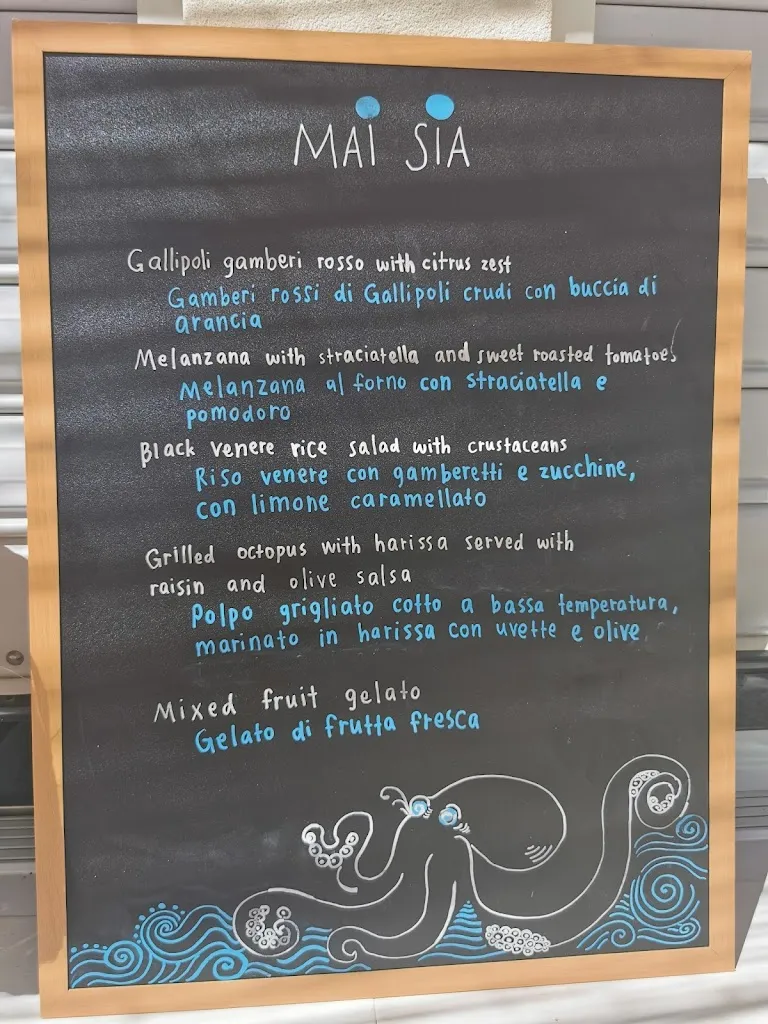 MAI SIA
Gallipoli gamberi rosso with citrus zest
Gamberi rossi di Gallipoli crudi con buccia di
arancia
Melanzana with straciatella and sweet roasted tomatoes
Melanzana al forno con straciatella e
pomodoro
Black venere rice salad with crustaceans
Riso venere con gamberetti e zucchine,
con limone caramellato
Grilled octopus with harissa served with
raisin and olive salsa
Polpo grigliato cotto a bassa temperatura,
marinato in harissa con uvette e olive
Mixed fruit gelato
Gelato di frutta fresca